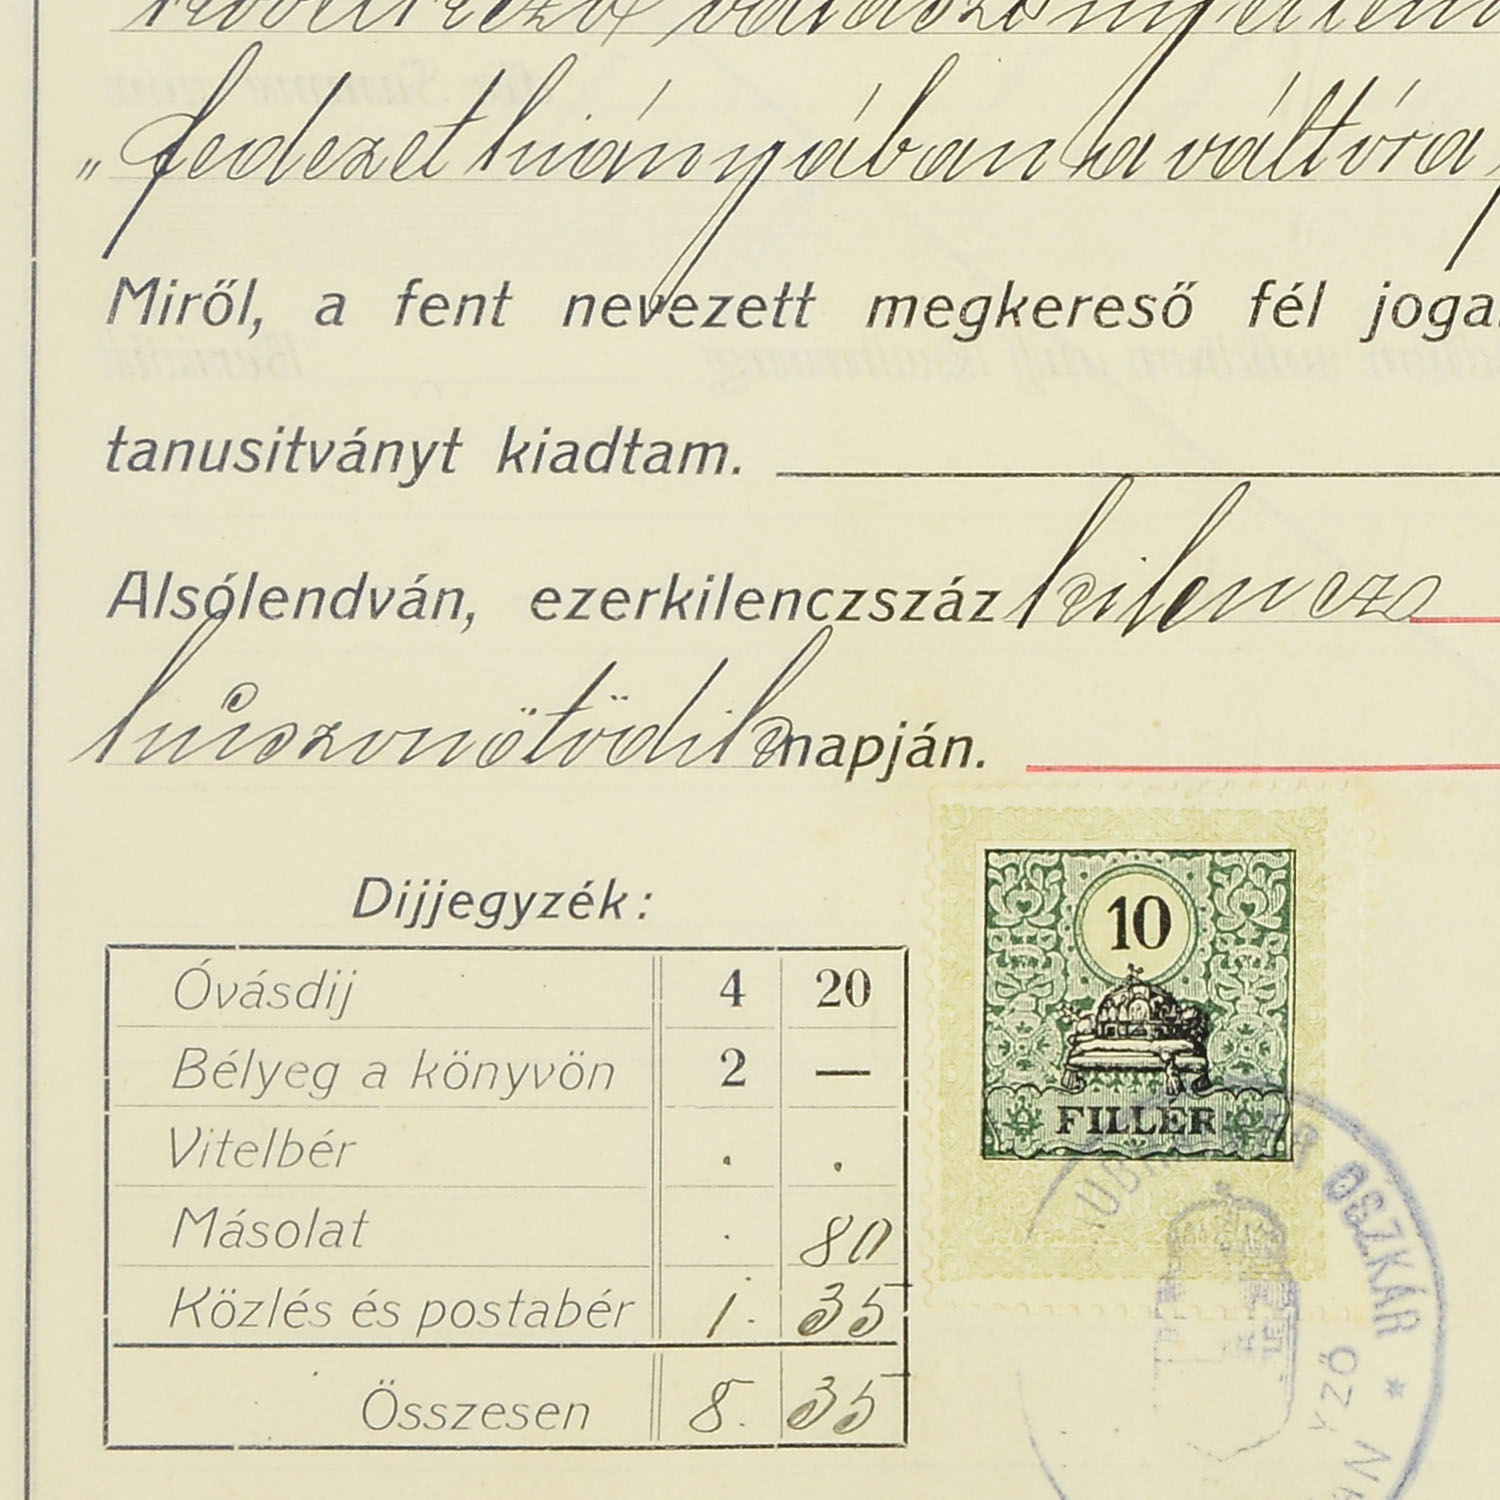 következő válasz
„fedezet hiányában a váltóra
Miről, a fent nevezett megkereső fél
tanusitványt kiadtam.
Alsólendván, ezerkilenczszáz kilencz
húszonötödik napján.
Dijjegyzék:
Óvásdij 4 20
Bélyeg a könyvön 2 —
Vitelbér . .
Másolat . 80
Közlés és postabér 1. 35
Összesen 8. 35
10
FILLÉR
OSZKÁR *